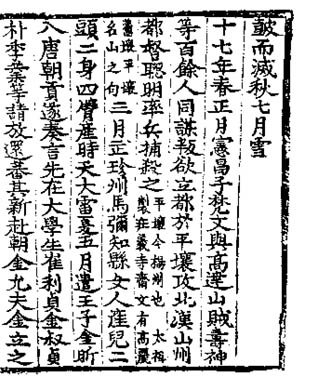 皷而滅秋七月雪
十七年春正月憲昌子梵文與高達山賊壽神
等百餘人同謀叛欲立都於平壤攻北漢山州
都督聰明率兵捕殺之平壤今楊州也 太祖製莊義寺齋文有高麗
舊壤平壤名山之句三月武珍州馬彌知縣女人産兒二
頭二身四臂産時天大雷夏五月遣王子金昕
入唐朝貢遂奏言先在大學生崔利貞金叔貞
朴季業等請放還蕃其新赴朝金允夫金立之